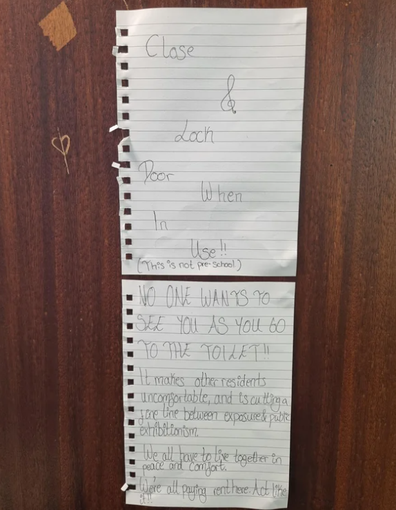 Close
&
Lock
Door
When
In
Use!!
(This is not pre-school)
NO ONE WANTS TO
SEE YOU AS YOU GO
TO THE TOILET!!
It makes other residents
uncomfortable, and is cutting a
fine line between exposure & public
exhibitionism.
We all have to live together in
peace and comfort.
We're all paying rent here. Act like
it!!